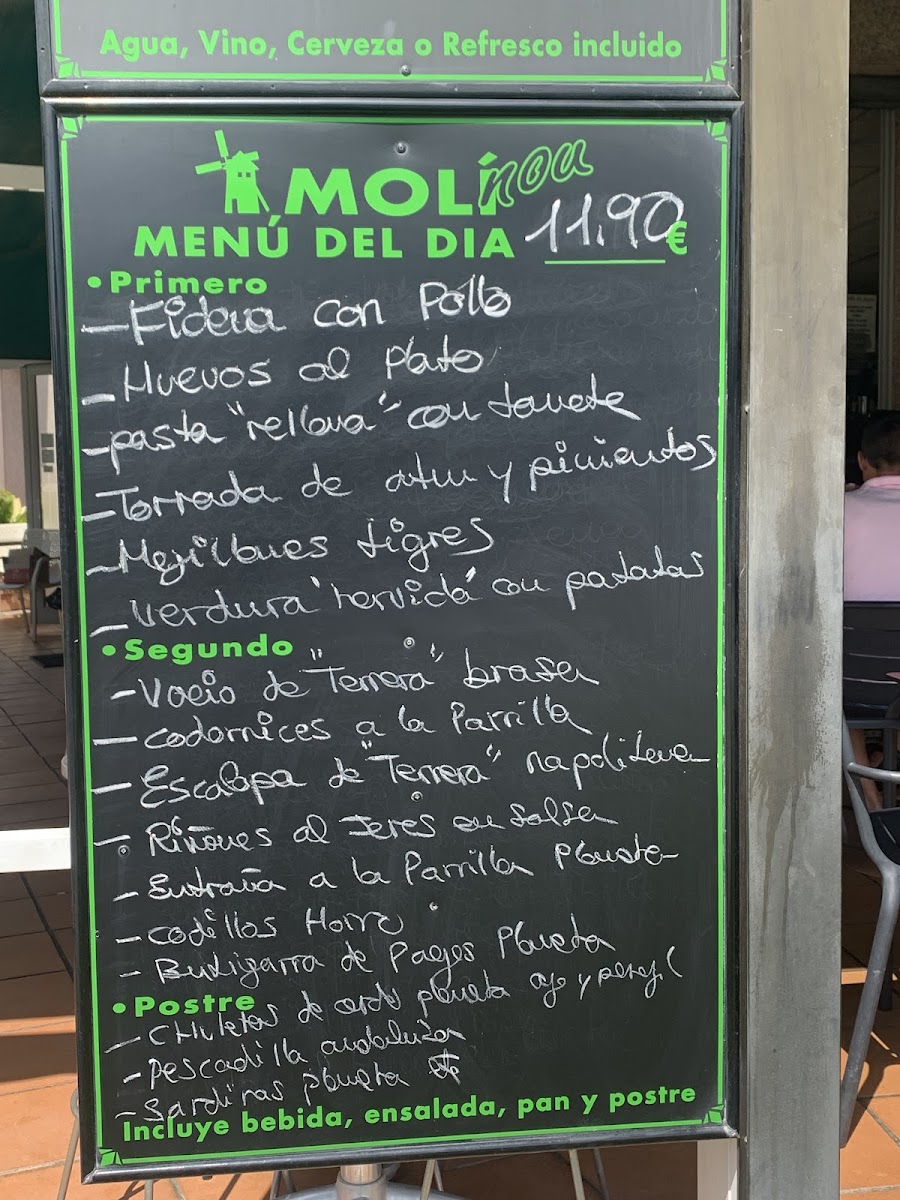 Agua, Vino, Cerveza o Refresco incluido
MOLÍ nou
MENÚ DEL DIA 11.90 €
• Primero
- Fideua con Pollo
- Huevos al plato
- pasta "rellena" con tomate
- Torrada de atun y pimientos
- Mejillones tigres
- Verdura "hervida" con patatas
• Segundo
- Vacio de "Ternera" brasa
- codornices a la Parrilla
- Escalopa de "Ternera" napolitana
- Riñones al Jeres en salsa
- Entraña a la Parrilla Plancha
- codillos Horno
- Butigarra de Pages Plancha
• Postre
- CHuletas de cerdo plancha ajo y perejil
- Pescadilla andaluza
- Sardinas plancha
Incluye bebida, ensalada, pan y postre